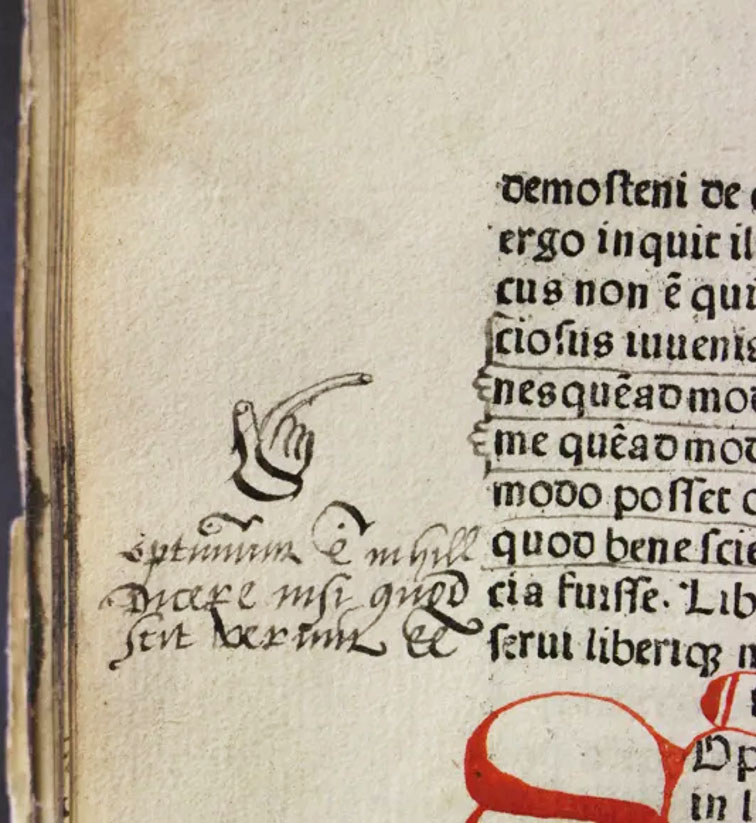 demosteni de
ergo inquit il
cus non ē qui
ciosus iuuenis
nes quēadmod
me quēadmod
modo posset
quod bene scie
cia fuisse. Lib
serui liberiqꝫ
optimum ē nihill
Dicere nisi quod
scit verum
Op
in l